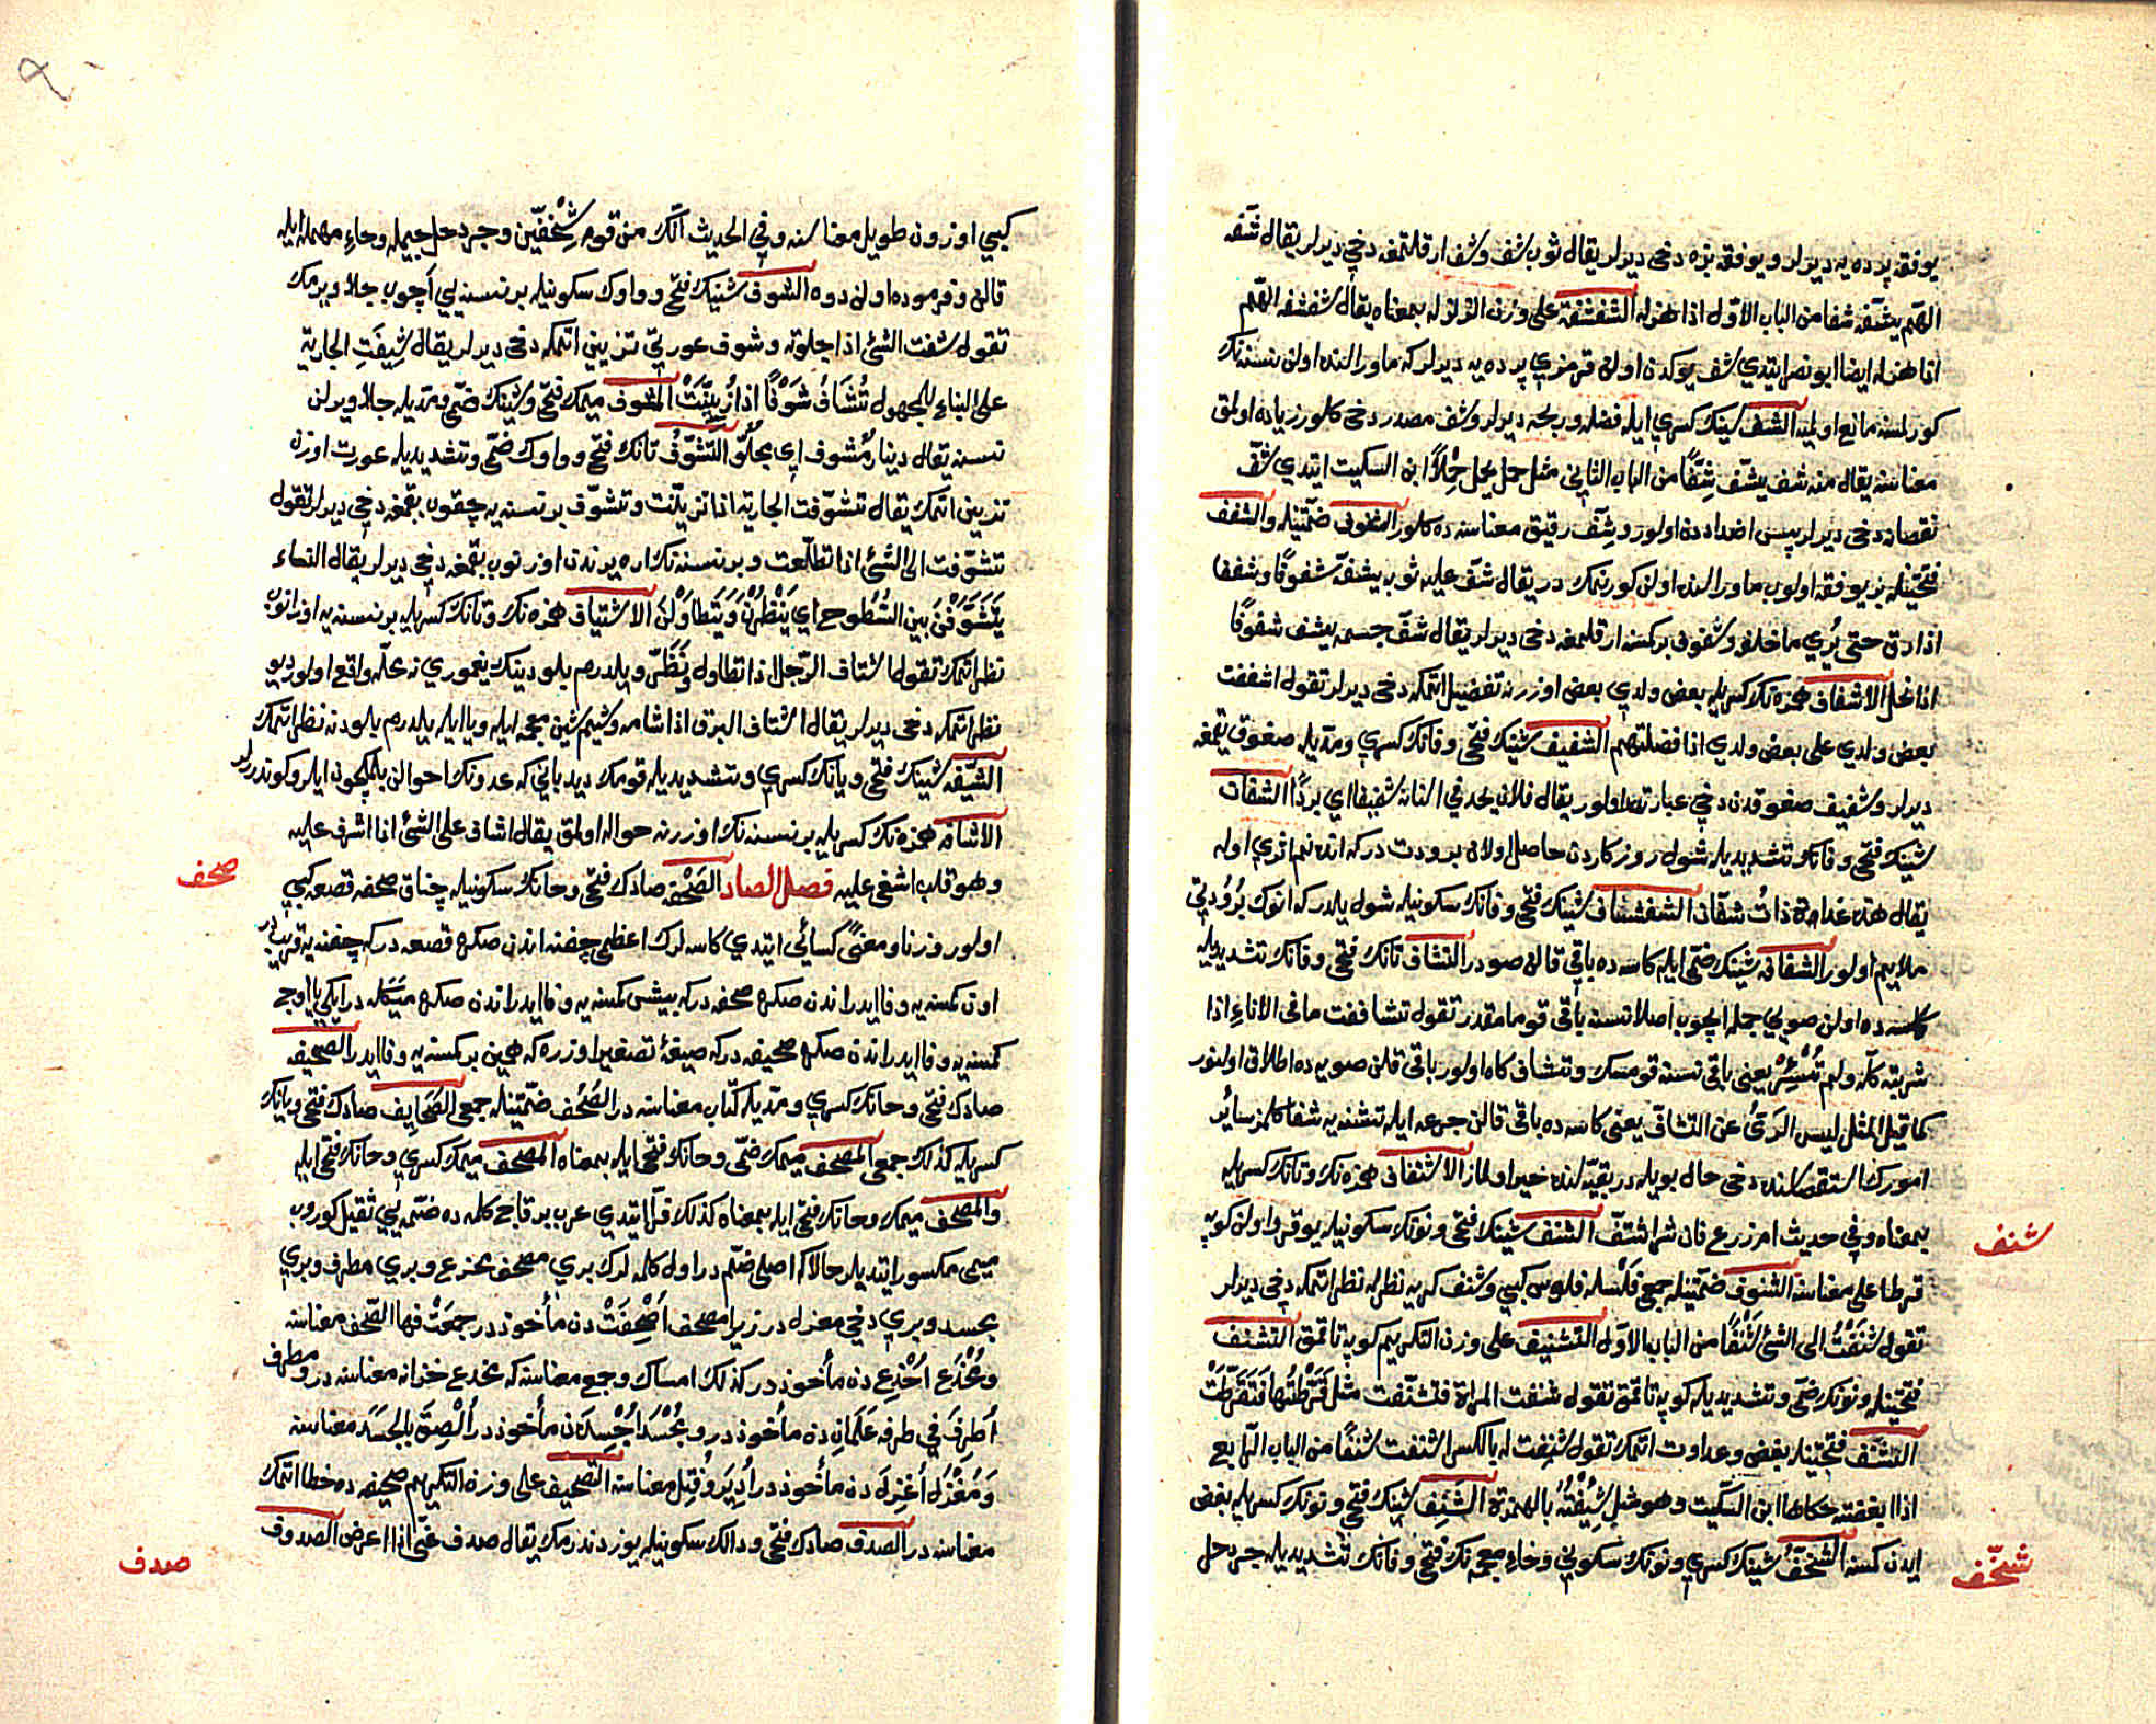 يوفقه پرده يه ديرلر ويوفقه بزه دخى ديرلر يقال ثوب شف وشف ارقلتمغه دخى ديرلر يقال شفه
الهم يشفه شفا من الباب الاول اذا هزله الشفشفة على وزن الزلزله بمعناه يقال شفشفه الهم
اذا هزله ايضا ابونصر ايتدي شف يوكدن اولن قرمزي پرده يه ديرلر كه ماوراسنده اولن نسنه نك
كورلمسنه مانع اولميه الشف شينك كسري ايله فضله وربحه ديرلر وشف مصدر دخى كلور زياده اولمق
معناسنه يقال منه شف يشف شفا من الباب الثاني مثل حمل يحمل حملا ابن السكيت ايتدي شف
نقصانه دخى ديرلر پس اضداددن اولور وشف رقيق معناسنه ده كلور الشفوف ضمتيله والشفف
فتحتيله بز يوفقه اولوب ماوراسنده اولن كورنمك در يقال شف عليه ثوبه يشف شفوفا وشففا
اذا رق حتى يرى ما خلفه وشفوف بر كمسنه ارقلمغه دخى ديرلر يقال شف جسمه يشف شفوفا
اذا نحل الاشفاف همزه نك كسريله بعض ولدي بعض اوزرنه تفضيل اتمكه دخى ديرلر تقول اشففت
بعض ولدي على بعض ولدي اذا فضلتهم الشفيف شينك فتحى وفانك كسري ومديله صغوق يقمغه
ديرلر وشفيف صغوقدن دخى عبارتدر اولور يقال فلان يجد في اسنانه شفيفا اي بردا الشفان
شينك فتحى وفانك تشديديله شول روزكاردن حاصل اولان برودت در كه انده نم اثري اوله
يقال هذه غداة ذات شفان الشفشاف شينك فتحى وفانك سكونيله شول يلدر كه انوك برودتي
ملايم اولور الشفافه شينك ضمي ايله كاسه ده باقي قالن صودر التشاف تانك فتحى وفانك تشديديله
كاسه ده اولن صويي جمله ايچوب اصلا نسنه باقى قومامقدر تقول تشاففت ما في الاناء اذا
شربته كله ولم تسئر يعنى باقى نسنه قومسك وتشاف كاه اولور باقى قلن صويه ده اطلاق اولنور
كما قيل المثل ليس الري عن التشاف يعنى كاسه ده باقى قالن جرعه ايله تشنه يه شفا كلمز سائر
امورك استقصاسنده دخى حال بويله در بقيه سنده خير اولماز الاشتفاف همزه نك وتانك كسريله
بمعناه وفي حديث ام زرع فان شرب اشتف الشنف شينك فتحى ونونك سكونيله يوقرو اولن كوپه
شنف
قرطا على معناسنه الشنوف ضمتيله جمعى فلسله فلوس كبي وشنف كريه نظرله نظر اتمكه دخى ديرلر
تقول شنفت الى الشئ شنفا من الباب الاول التشنيف على وزن التكريم كوپه تاقمق التشنف
فتحتيله ونونك ضمي وتشديديله كوپه تاقمق تقول شنفت المراة فتشنفت مثل قرطتها فتقرطت
الشنف فتحتيله بغض وعداوت اتمك تقول شنفت له بالكسر اشنفت شنفا من الباب الرابع
اذا ابغضته حكاها ابن السكيت وهو مثل شئفته بالهمزة الشنف شينك فتحى ونونك كسريله بغض
ايدن كمسنه الشنخف شينك كسري ونونك سكوني وخاء معجمه نك فتحى وفانك تشديديله جردحل
شنخف
كبي اوزون طويل معناسنه وفي الحديث انك من قوم شنخفين وجردحل جيمله وحاء مهمله ايله
قالن وفرموده اولن دوه الشوف شينك فتحى وواوك سكونيله بر نسنه يي آچوب جلا ويرمك
تقول شفت الشئ اذا جلوته وشوف عورتي تزيين اتمكه دخى ديرلر يقال شيفت الجارية
على البناء للمجهول تشاف شوفا اذا زينت المشوف ميمك فتحى وشينك ضمى ومديله جلا ويرلن
نسنه يقال دينار مشوف اي مجلو التشوف تانك فتحى وواوك ضمى وتشديديله عورت اوزن
تزيين اتمك يقال تشوفت الجارية اذا تزينت وتشوف بر نسنه يه چقوب بقمغه دخى ديرلر تقول
تشوفت الى الشئ اذا تطلعت وبر نسنه نك اره يرندن اوزنوب بقمغه دخى ديرلر يقال النساء
يتشوفن بين السطوح اي ينظرن ويتطاولن الاشتياف همزه نك وتانك كسريله بر نسنه يه اوزانوب
نظر اتمك تقول اشتاف الرجل اذا تطاول ونظر ويلدرم بلودينك يغموري نه محله واقع اولور ديو
نظر اتمكه دخى ديرلر يقال اشتاف البرق اذا شامه وشيم شين معجمه ايله ويا ايله يلدرم بلودنه نظر اتمك
الشيفه شينك فتحى ويانك كسري وتشديديله قومك ديدباني كه عدونك احوالن بلمكچون ايلرو كوندررلر
الاشافه همزه نك كسريله بر نسنه نك اوزرنه حواله اولمق يقال اشاف على الشئ اذا اشرف عليه
وهو قلب اشفى عليه فصل الصاد الصحفه صادك فتحى وحانك سكونيله چناق صحفه قصعه كبي
صحف
اولور وزنا ومعنى كسائى ايتدي كاسه لرك اعظمى جفنه اندن صكره قصعه در كه جفنه يه قريبدر
اون كمسنه يه وفا ايدر اندن صكره صحفه در كه بيش كمسنه يه وفا ايدر اندن صكره ميكله در ايكي يا اوچ
كمسنه يه وفا ايدر اندن صكره صحيفه در كه صيغۀ تصغير اوزره كه همين بر كمسنه يه وفا ايدر الصحيفه
صادك فتحى وحانك كسري ومديله كتاب معناسنه در الصحف ضمتيله جمعى الصحايف صادك فتحى ويانك
كسريله كذلك جمعى المصحف ميمك ضمى وحانك فتحى ايله بمعناه المصحف ميمك كسري وحانك فتحى ايله
والمصحف ميمك وحانك فتحى ايله بمعناه كذلك فرا ايتدي عرب بر قاچ كلمه ده ضمه يي ثقيل كوروب
ميمى مكسور ايتديلر حالا كه اصلى ضم در اول كلمه لرك بري مصحف مخدع وبري مطرف وبري
مجسد وبري دخى مغزل در زيرا مصحف اصحفت دن مأخوذدر جمعت فيها الصحف معناسنه
ومخدع اخدع دن مأخوذدر كذلك امساك وجمع معناسنه كه مخدع خزانه معناسنه در ومطرف
اطرف في طرفه علمان دن مأخوذدر ومجسد اجسد دن مأخوذدر الصق بالجسد معناسنه
ومغزل اغزل دن مأخوذدر ادير وفتل معناسنه التصحيف على وزن التكريم صحيفه ده خطا اتمك
معناسنه در الصدف صادك فتحى ودالك سكونيله يوز دندرمك يقال صدف عنى اذا اعرض الصدوف
صدف